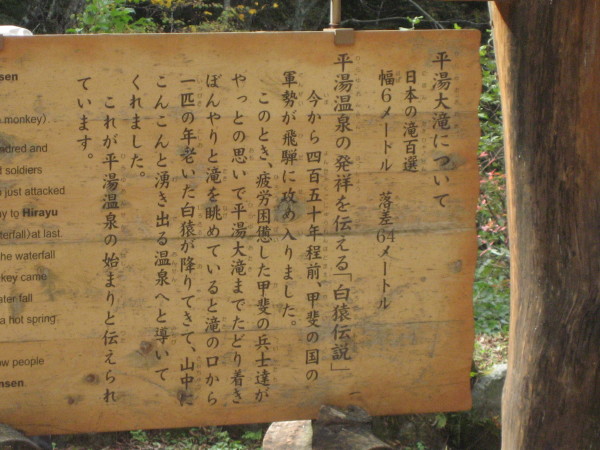 平湯大滝について
日本の滝百選
幅6メートル　落差64メートル
平湯温泉の発祥を伝える「白猿伝説」
今から四百五十年程前、甲斐の国の
軍勢が飛騨に攻め入りました。
このとき、疲労困憊した甲斐の兵士達が
やっとの思いで平湯大滝までたどり着き
ぼんやりと滝を眺めていると滝の口から
一匹の年老いた白猿が降りてきて、山中に
こんこんと湧き出る温泉へと導いて
くれました。
これが平湯温泉の始まりと伝えられ
ています。
nsen
monkey)
dred and
soldiers
just attacked
y to Hirayu
terfall) at last.
he waterfall
key came
ater fall
a hot spring
ow people
nsen.